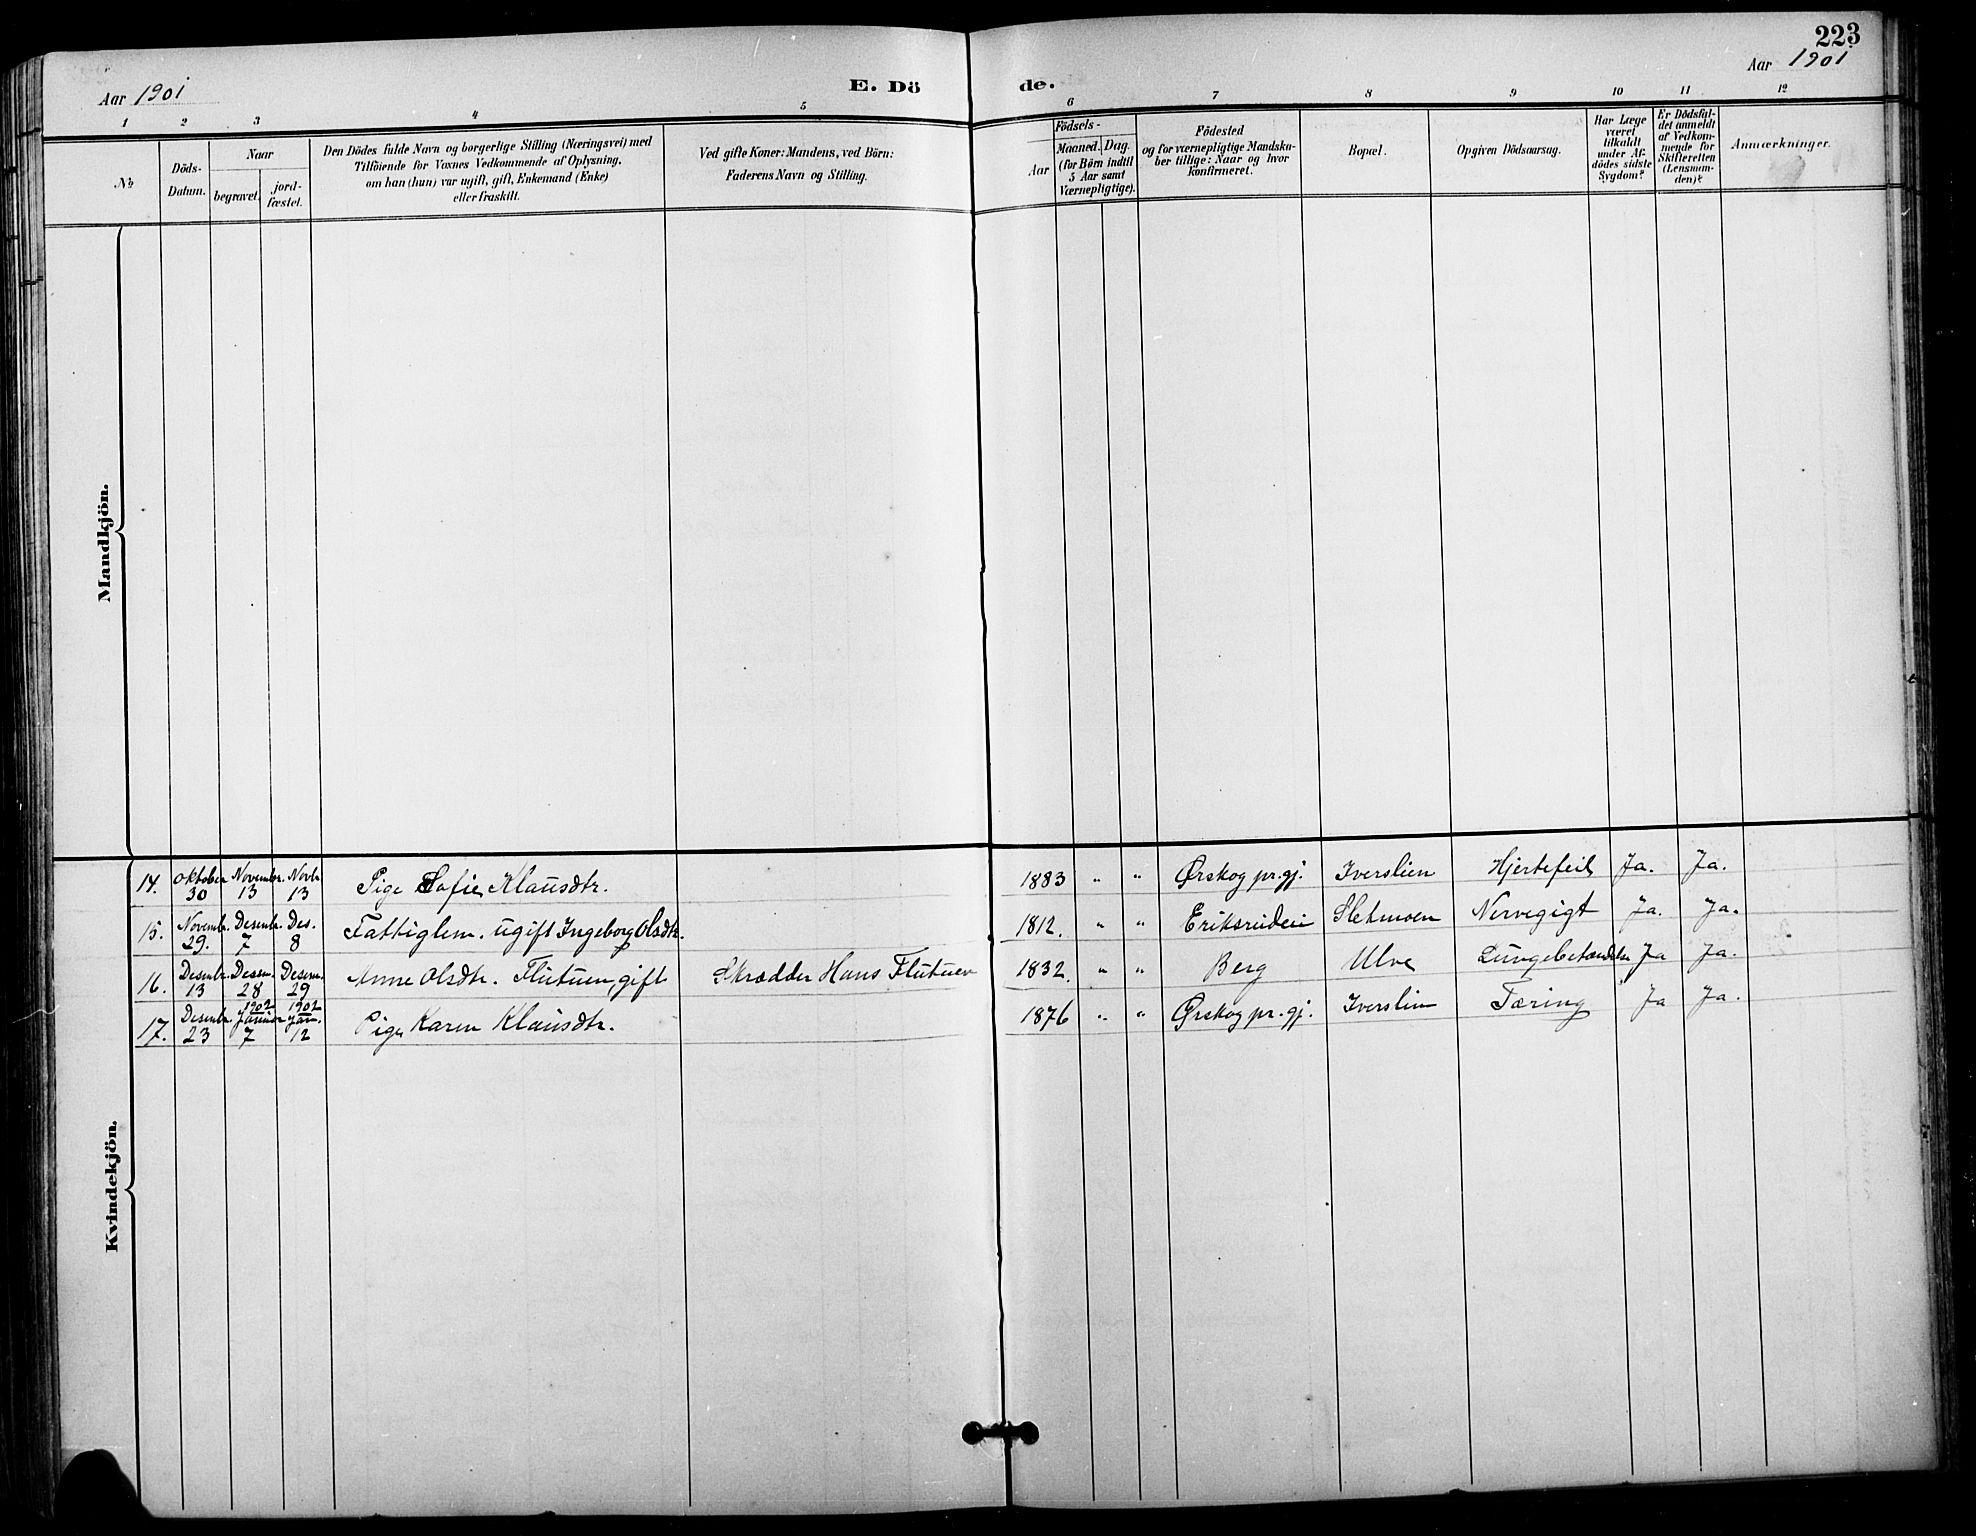 223
Aar 1901 E. Dö de. Aar 1901
1 2 3 4 5 6 7 8 9 10 11 12
№
Döds-
Datum.
Naar
begravet.
jord-
fæstet.
Den Dödes fulde Navn og borgerlige Stilling (Næringsvei) med
Tilföiende for Voxnes Vedkommende af Oplysning,
om han (hun) var ugift, gift, Enkemand (Enke)
eller fraskilt.
Ved gifte Koner: Mandens, ved Börn:
Faderens Navn og Stilling.
Födsels-
Aar
Maaned. Dag.
(for Børn indtil
5 Aar samt
Værnepligtige).
Födested
og for værnepligtige Mandska-
ber tillige: Naar og hvor
konfirmeret.
Bopæl.
Opgiven Dödsaarsag.
Har Læge
været
tilkaldt
under Af-
dödes sidste
Sygdom?
Er Dödsfal-
det anmeldt
af Vedkom-
mende for
Skifteretten
(Lensman-
den)?
Anmærkninger.
Mandkjön.
Kvindekjön.
14. Oktober 30 Novembr. 13 Novbr 13 Pige Sofie Klausdtr. 1883 " " Ørskog pr.gj. Iverslien Hjertefeil Ja. Ja.
15. Novembr. 29. Desembr. 7 Des. 8 Fattiglem. ugift Ingeborg Olsdtr. 1812. " " Eriksrudeie Sletmoen Nervegigt Ja. Ja.
16. Desembr. 13 Desem. 28 Desem. 29 Anne Olsdtr. Flutuen, gift Skrædder Hans Flutuen 1832. " " Berg Ulve Lungebetændelse Ja Ja.
17. Desembr. 23 1902 Januar 7 1902 Jan. 12 Pige Karen Klausdtr. 1876 " " Ørskog pr.gj. Iverslien Tæring Ja Ja.